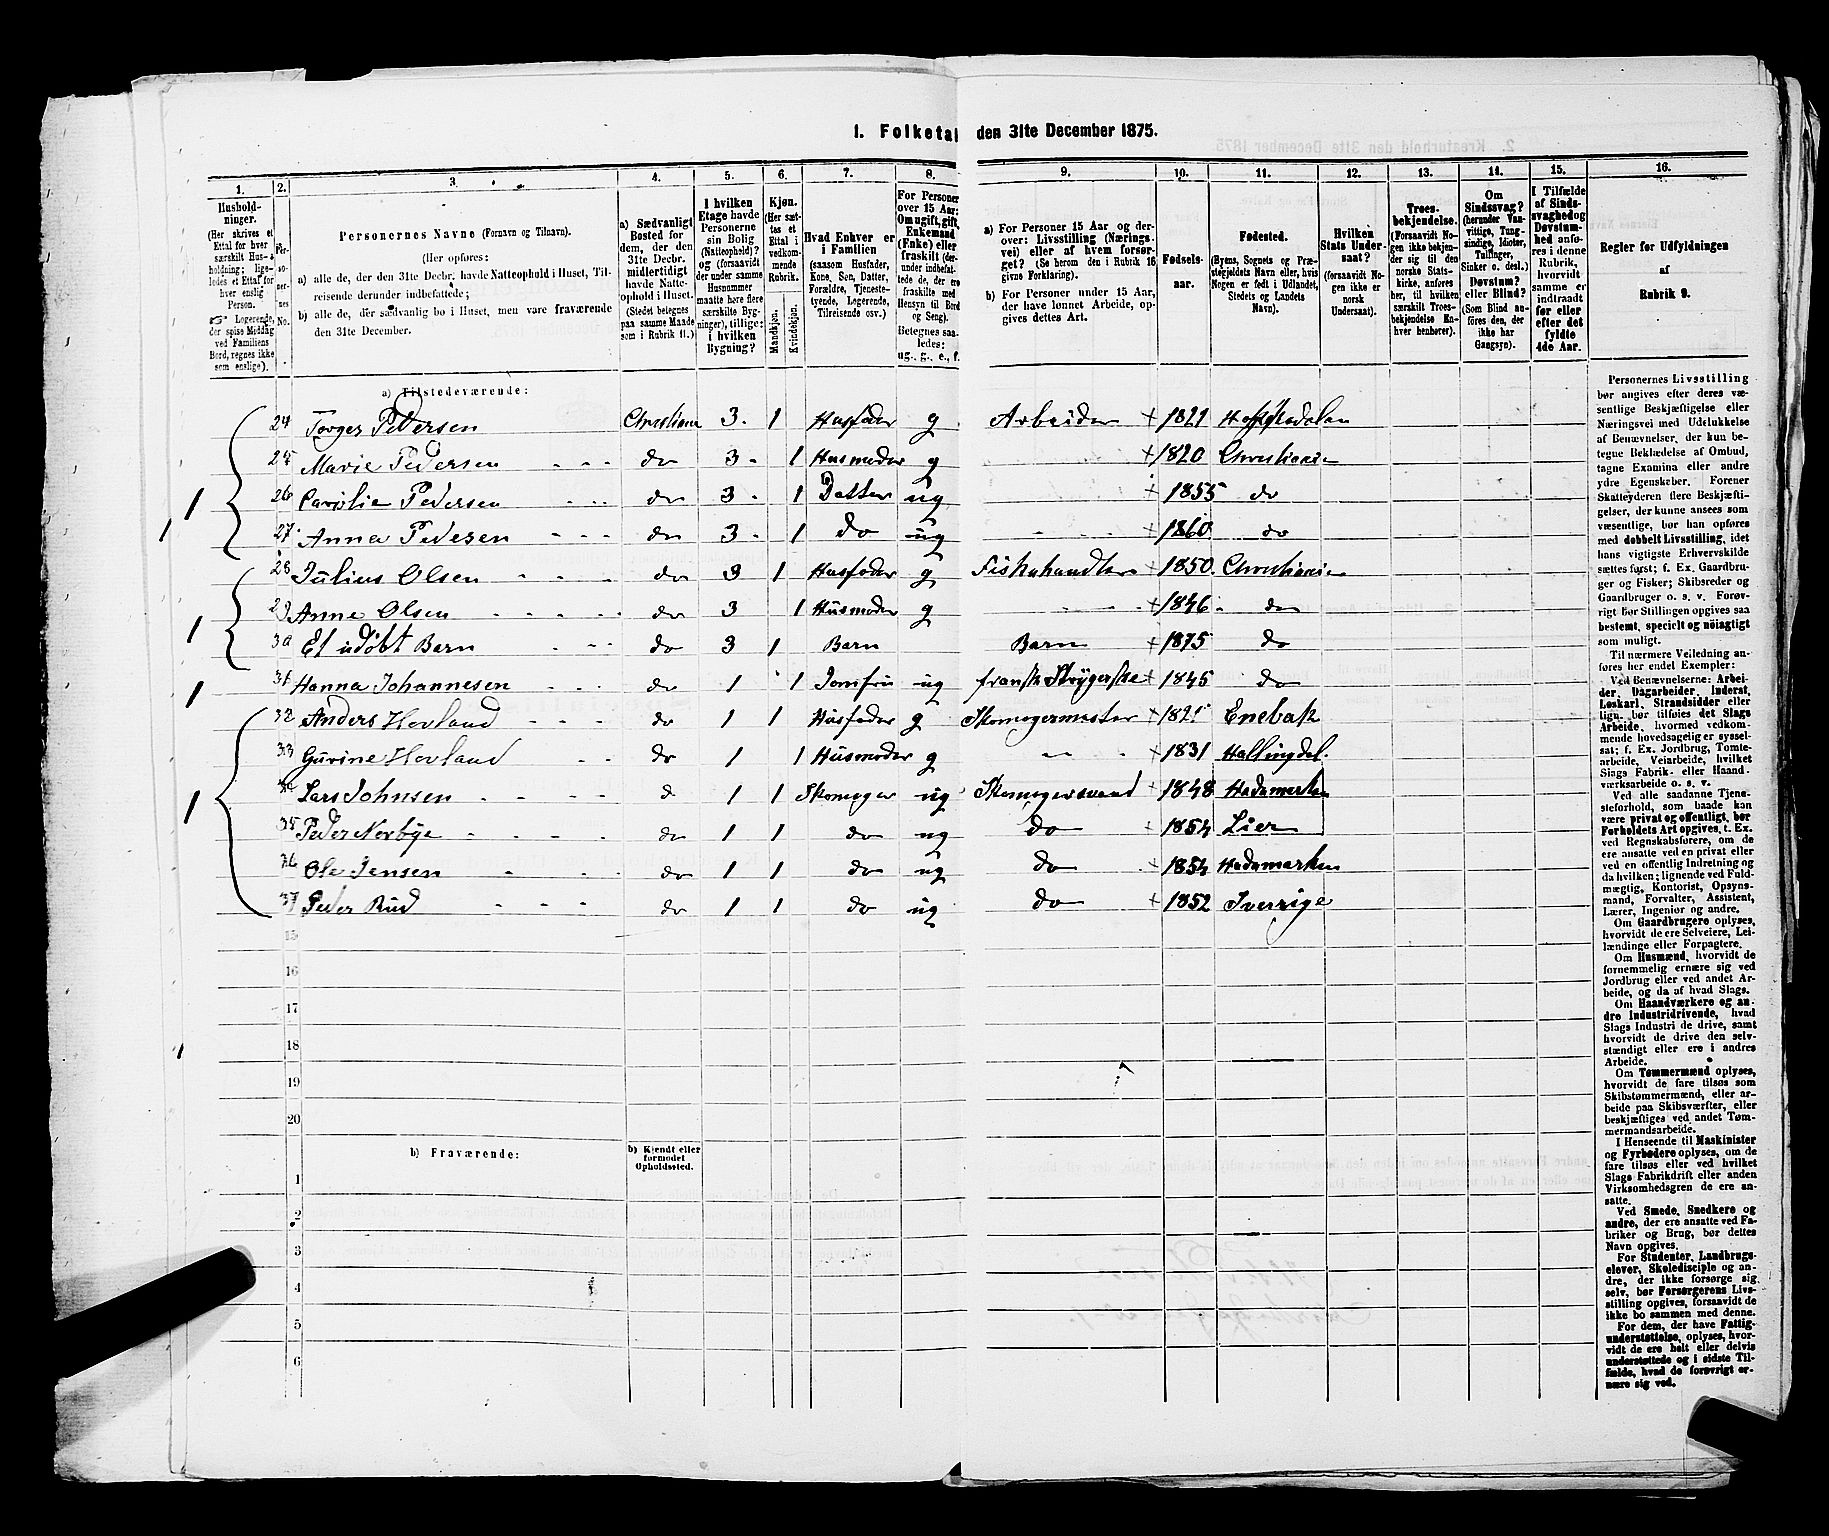 1. Folketal den 31te December 1875.
1. 2. 3. 4. 5. 6. 7. 8. 9. 10. 11. 12. 13. 14. 15. 16.
Hushold-
ninger.
(Her skrives et
Ettal for hver
særskilt Hus-
holdning; lige-
ledes et Ettal for
hver enslig
Person.
Logerende,
der spise Middag
ved Familiens
Bord, regnes ikke
som enslige).
Per-
so-
ner-
nes
No.
Personernes Navne (Fornavn og Tilnavn).
(Her opføres:
a) alle de, der den 31te Decbr. havde Natteophold i Huset, Til-
reisende derunder indbefattede;
b) alle de, der sædvanlig bo i Huset, men vare fraværende
den 31te December.
a) Sædvanligt
Bosted for
dem, der den
31te Decbr.
midlertidigt
havde Natte-
ophold i Huset.
(Stedet betegnes
paa samme Maade
som i Rubrik 11.)
I hvilken
Etage havde
Personerne
sin Bolig
(Natteophold)?
og (forsaavidt
der under samme
Husnummer
maatte høre flere
særskilte Byg-
ninger), tillige:
i hvilken
Bygning?
Kjøn.
(Her sæt-
tes et
Ettal i
vedkom-
mende
Rubrik.)
Mandkjøn.
Kvindekjøn.
Hvad Enhver er
i Familien
(saasom Husfader,
Kone, Søn, Datter,
Forældre, Tjeneste-
tyende, Logerende,
Tilreisende osv.)
For Personer
over 15 Aar:
Om ugift, gift,
Enkemand
(Enke) eller
fraskilt (der-
under indbefat-
tede de, der ere
fraskilte med
Hensyn til Bord
og Seng).
Betegnes saa-
ledes:
ug., g., e., f.
a) For Personer 15 Aar og der-
over: Livsstilling (Nærings-
vei) eller af hvem forsør-
get? (Se herom den i Rubrik 16
givne Forklaring).
b) For Personer under 15 Aar,
der have lønnet Arbeide, op-
gives dettes Art.
Fødsels-
aar.
Fødested.
(Byens, Sognets og Præ-
stegjeldets Navn eller, hvis
Nogen er født i Udlandet,
Stedets og Landets
Navn).
Hvilken
Stats Under-
saat?
(forsaavidt No-
gen ikke er
norsk
Undersaat).
Troes-
bekjendelse.
(Forsaavidt No-
gen ikke bekjen-
der sig til den
norske Stats-
kirke, anføres
her, til hvilken
særskilt Troes-
bekjendelse En-
hver henhører).
Om
Sindssvag?
(herunder Van-
vittige, Tung-
sindige, Idioter,
Tullinger,
Sinker o. desl.)
Døvstum?
eller Blind?
(Som Blind an-
føres den, der
ikke har
Gangsyn).
I Tilfælde
af Sinds-
svaghed og
Døvstum-
hed anfø-
res i denne
Rubrik,
hvorvidt
samme er
indtraadt
før eller
efter det
fyldte
4de Aar.
Regler for Udfyldningen
af
Rubrik 9.
a) Tilstedeværende:
24 Torger Pedersen Christiania 3. 1 Husfader g Arbeider + 1821
25 Marie Pedersen - - - do 3 - 1 Husmoder g + 1820 Christiania
26 Carolie Pedersen - - do 3 - 1 Datter ug + 1855 do
27 Anna Pedesen - - - do 3 - 1 do ug + 1860 do
28 Julius Olsen - - - do 3 1 Husfader g Fiskehandler + 1850. Christiania
29 Anne Olsen - - - do 3 1 Husmoder g + 1846 - do
30 Et udøbt Barn - - - do 3 1 Barn Barn + 1875 do
31 Hanna Johannesen - - do 1 1 Jomfru ug fransk Strygerske + 1845 do
32 Anders Hovland - - - do 1 1 Husfader g Skomagermester + 1821 Enebak
33 Gurine Hovland - - do 1 1 Husmoder g + 1831 Hallingdal.
34 Lars Johnsen - - - - d 1 1 Skomager ug Skomagersvend + 1848 Hedemarken
35 Peder Norbye - - - - do 1 1 do ug do + 1854 Lier
36 Ole Jensen - - - do 1 1 do ug do + 1854 Hedemarken
37 Peder Rud - - - do 1 1 do ug do + 1852 Sverrige
15
16
17
18
19
20
b) Fraværende:
b) Kjendt eller
formodet
Opholdssted.
1
2
3
4
5
6
Personernes Livsstilling
bør angives efter deres væ-
sentlige Beskjæftigelse eller
Næringsvei med Udelukkelse
af Benævnelser, der kun be-
tegne Beklædelse af Ombud,
tagne Examina eller andre
ydre Egenskaber. Forener
Skatteyderen flere Beskjæfti-
gelser, der kunne ansees som
væsentlige, bør han opføres
med dobbelt Livsstilling, idet
hans vigtigste Erhvervskilde
sættes først; f. Ex. Gaardbru-
ger og Fisker; Skibsreder og
Gaardbruger o. s. v. Forøv-
rigt bør Stillingen opgives saa
bestemt, specielt og nøiagtigt
som muligt.
Til nærmere Veiledning an-
føres her endel Exempler:
Ved Benævnelserne: Arbei-
der, Dagarbeider, Inderst,
Løskarl, Strandsidder eller
lign. bør tilføies det Slags
Arbeide, hvormed vedkom-
mende hovedsagelig er syssel-
sat; f. Ex. Jordbrug, Tomte-
arbeide, Veiarbeide, hvilket
Slags Fabrik- eller Haand-
værksarbeide o. s. v.
Ved alle saadanne Tjene-
steforhold, som baade kan
være privat og offentligt, bør
Forholdets Art opgives, t. Ex.
ved Regnskabsførere, om de
ere ansatte ved en privat eller
ved en offentlig Indretning og
da hvilken; lignende ved Fuld-
mægtig, Kontorist, Opsyns-
mand, Forvalter, Assistent,
Lærer, Ingeniør og andre.
Om Gaardbrugere oplyses,
hvorvidt de ere Selveiere, Lei-
lændinge eller Forpagtere.
Om Husmænd, hvorvidt de
fornemmelig ernære sig ved
Jordbrug eller ved andet Ar-
beide, og da af hvad Slags.
Om Haandværkere og an-
dre Industridrivende, hvad
Slags Industri de drive, samt
hvorvidt de drive den selv-
stændigt eller ere i andres
Arbeide.
Om Tømmermænd oplyses,
hvorvidt de fare tilsøs som
Skibstømmermænd, eller ar-
beide paa Skibsværfter, eller
beskjæftiges ved andet Tøm-
mermandsarbeide.
I Henseende til Maskinister
og Fyrbødere oplyses, om de
fare tilsøs eller ved hvilket
Slags Fabrikdrift eller anden
Virksomhedsgren de ere an-
satte.
Ved Smede, Snedkere og
andre, der ere ansatte ved Fa-
briker og Brug, bør dettes
Navn opgives.
For Studenter, Landbrugs-
elever, Skoledisciple og an-
dre, der ikke forsørge sig
selv, bør Forsørgerens Livs-
stilling opgives, forsaavidt de
ikke bo sammen med denne.
For dem, der have Fattig-
understøttelse, oplyses, hvor-
vidt de ere helt eller delvis
understøttede og i sidste Til-
fælde, hvad de forøvrigt er-
nære sig ved.